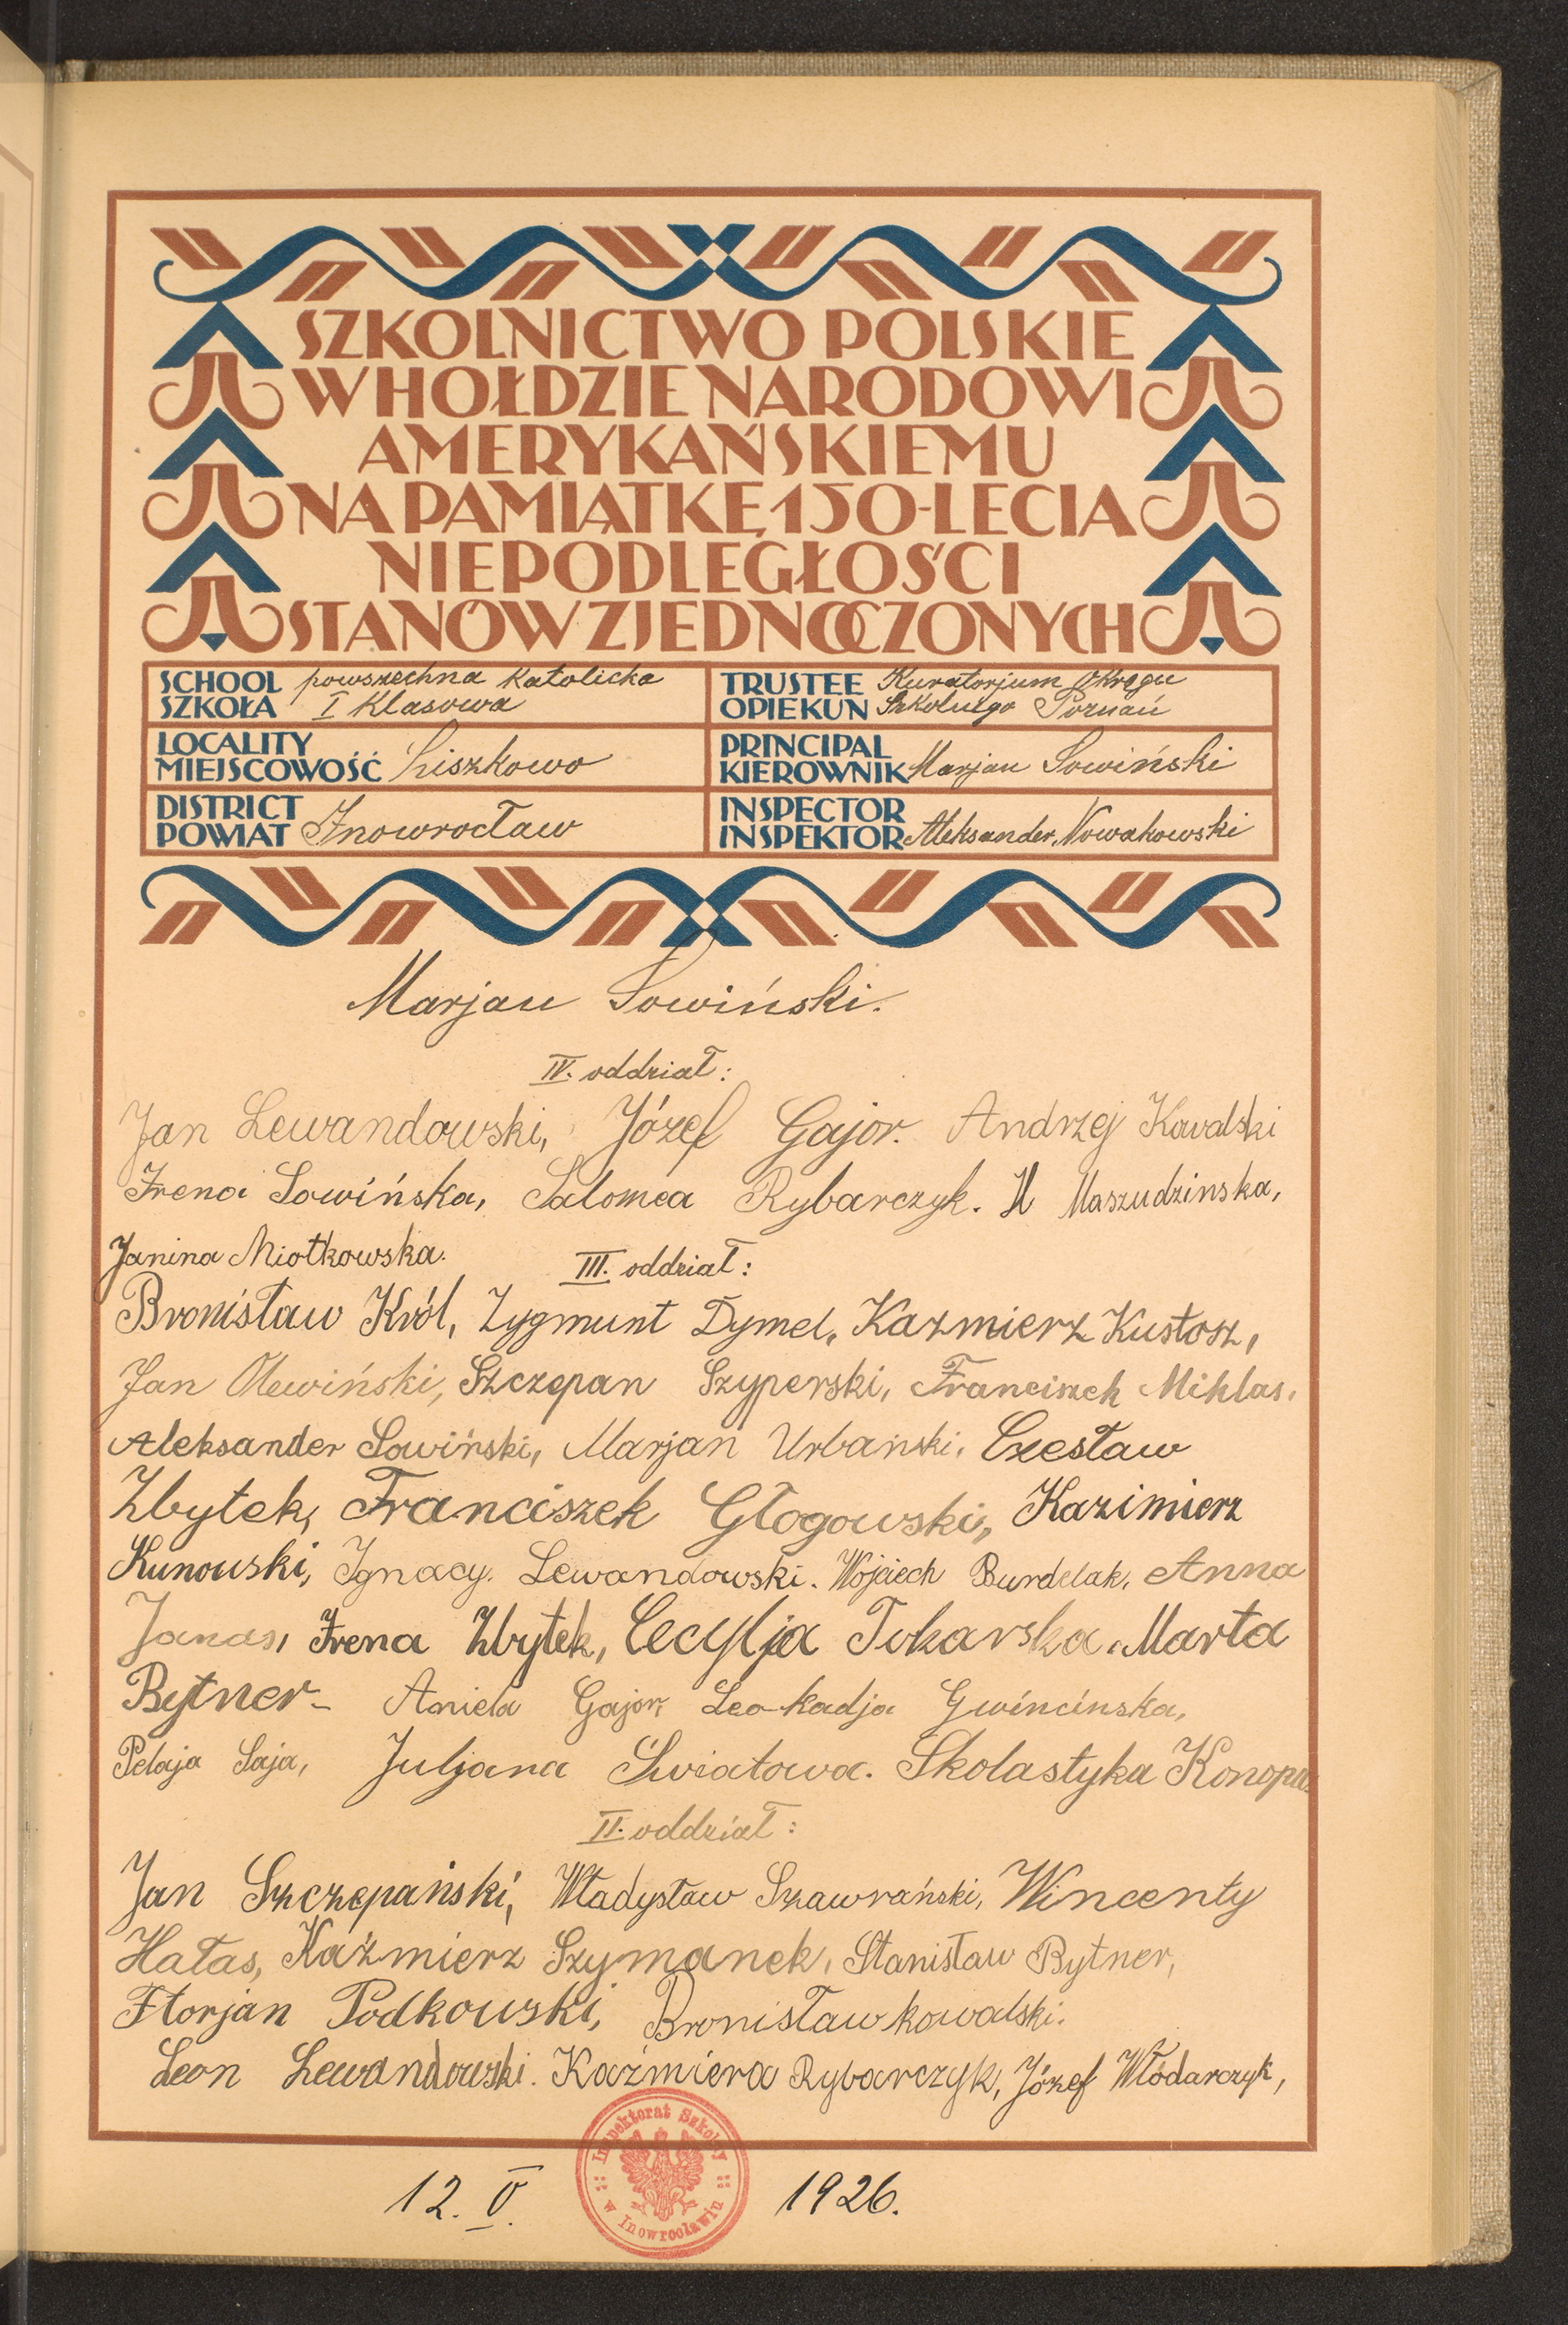 SZKOLNICTWO POLSKIE
W HOŁDZIE NARODOWI
AMERYKAŃSKIEMU
NA PAMIĄTKĘ 150-LECIA
NIEPODLEGŁOŚCI
STANÓW ZJEDNOCZONYCH
SCHOOL
SZKOŁA
powszechna katolicka
I klasowa
TRUSTEE
OPIEKUN
Kuratorjum Okręgu
Szkolnego Poznań
LOCALITY
MIEJSCOWOŚĆ Liszkowo
PRINCIPAL
KIEROWNIK Marjan Sowiński
DISTRICT
POWIAT Inowrocław
INSPECTOR
INSPEKTOR Aleksander Nowakowski
Marjan Sowiński.
IV. oddział:
Jan Lewandowski, Józef Gajor. Andrzej Kowalski
Irena Sowińska, Salomea Rybarczyk. H Maszudzinska,
Janina Miotkowska.
III. oddział:
Bronisław Król, Zygmunt Dymel, Kazmierz Kustosz,
Jan Olewiński, Szczepan Szyperski, Franciszek Miklas.
Aleksander Sowiński, Marjan Urbański. Czesław
Zbytek, Franciszek Głogowski, Kazimierz
Kunowski, Ignacy. Lewandowski. Wojciech Burdelak. Anna
Janas, Irena Zbytek, Cecylja Tokarska. Marta
Bytner- Aniela Gajor, Leo-kadja Gwincinska,
Pelaja Saja, Juljana Światowa. Skolastyka Konopa.
II. oddział:
Jan Szczepański, Władysław Szawrański, Wincenty
Hałas, Kaźmierz Szymanek, Stanisław Bytner,
Florjan Podkowski, Bronisław kowalski.
Leon Lewandowski. Kaźmiera Rybarczyk, Józef Włódarczyk,
Inspektorat Szkolny
w Inowrocławiu
12. V. 1926.